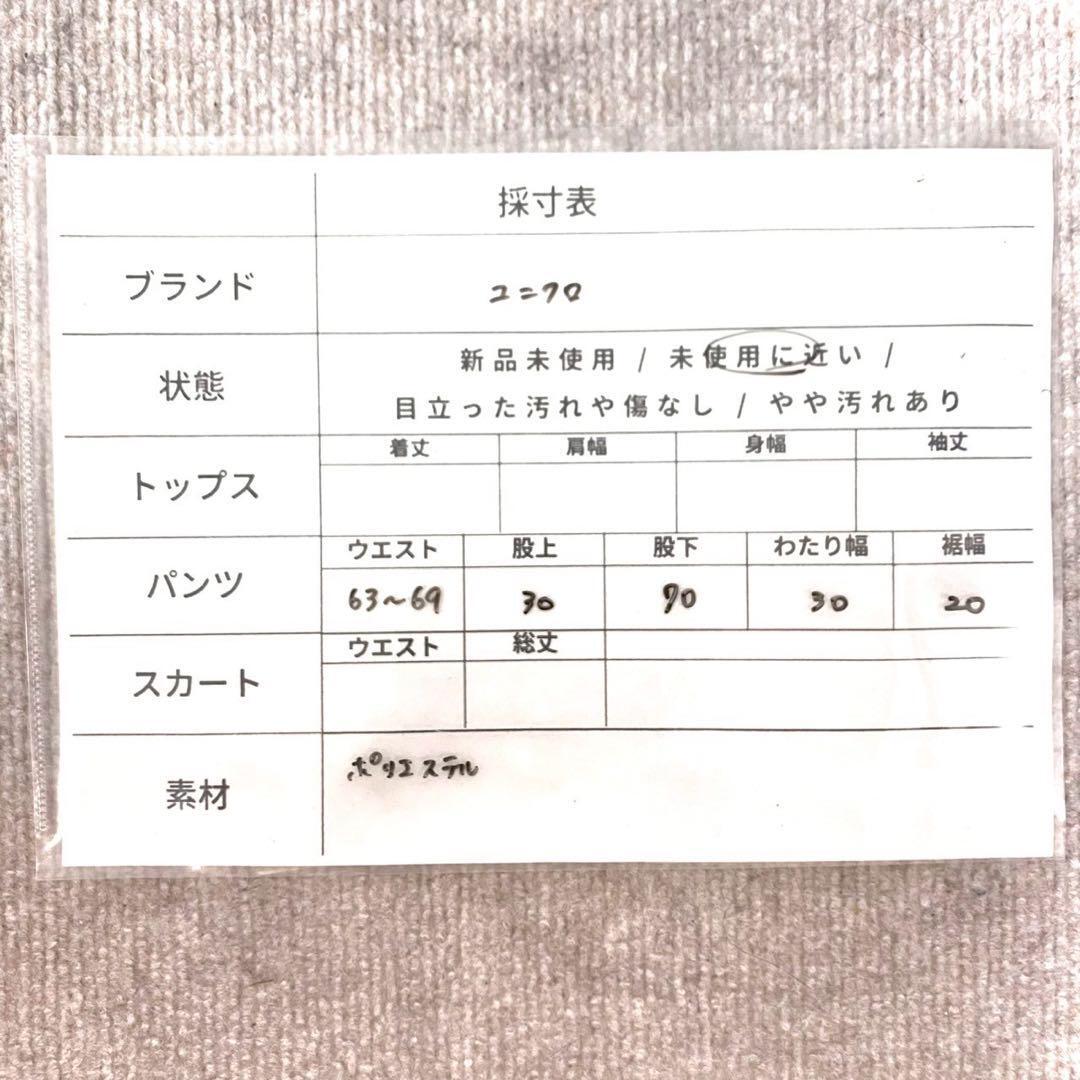 採寸表
ブランド ユニクロ
状態 新品未使用 / 未使用に近い /
目立った汚れや傷なし / やや汚れあり
トップス 着丈 肩幅 身幅 袖丈
パンツ ウエスト 股上 股下 わたり幅 裾幅
63~69 30 70 30 20
スカート ウエスト 総丈
素材 ポリエステル